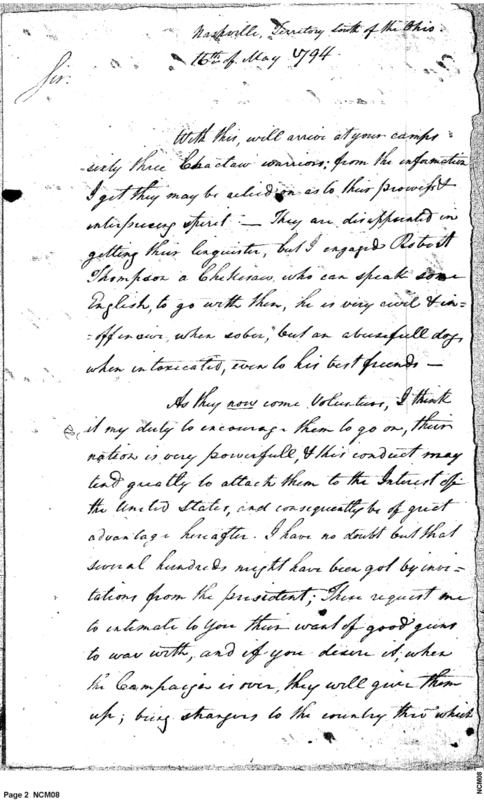 Nashville, Territory South of the Ohio
16th of May 1794
Sir.
With this, will arrive at your camps
sixty three Chactaw warriors; from the information
I get they may be relied on as to their prowess &
interprising spirit — They are disappointed in
getting their linguister, but I engaged Robert
Thompson a Chekisaw, who can speak some
English, to go with them, he is very civil & in=
=offensive, when sober, but an abusefull dog,
when intoxicated, even to his best friends —
As they now come Voluntiers, I think
it my duty to encourage them to go on, their
nation is very powerfull, & this conduct may
tend greatly to attach them to the Interest of
the United States, and consequently be of great
advantage hereafter. I have no doubt but that
several hundreds might have been got by invi=
tations from the president; These request me
to intimate to you their want of good guns
to war with, and if you desire it, when
the Campaign is over, they will give them
up; being strangers to the country thro which
Page 2 NCM08
NCM08